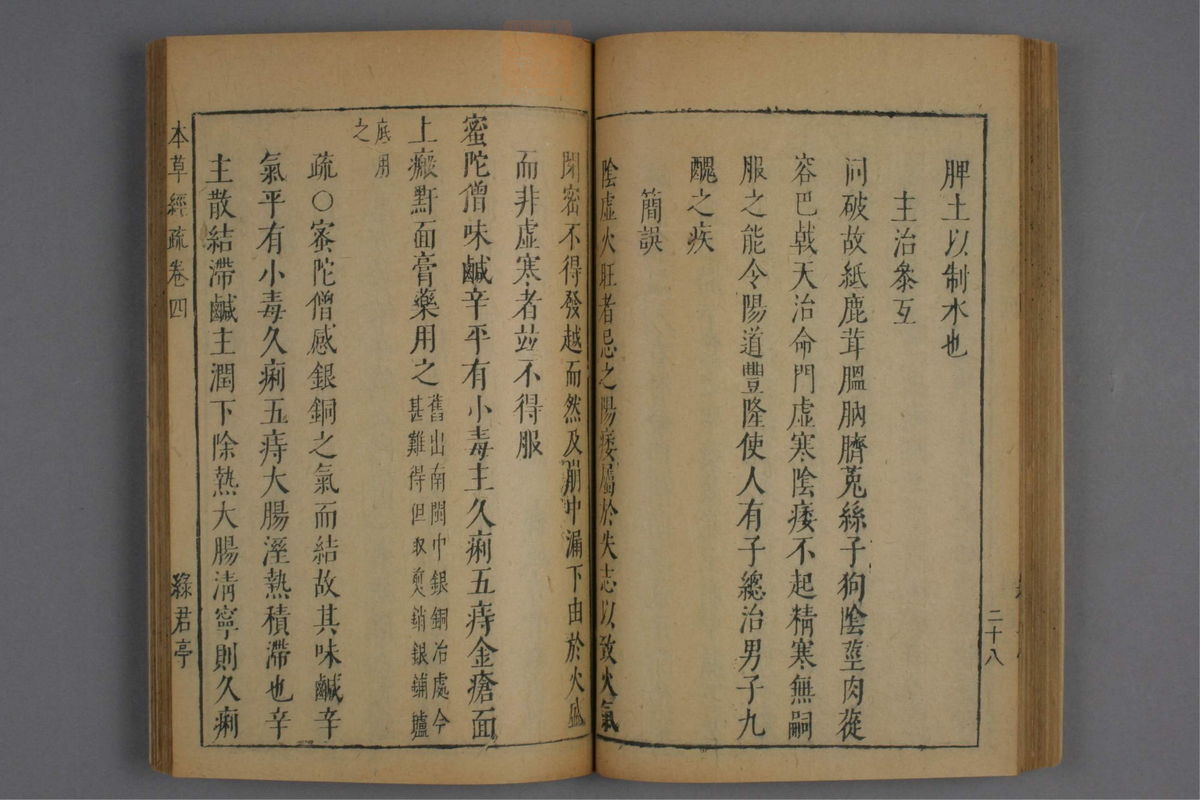 脾土以制水也
主治叅互
同破故紙鹿茸膃肭臍菟絲子狗陰莖肉蓯
容巴戟天治命門虛寒陰痿不起精寒無嗣
服之能令陽道豐隆使人有子總治男子九
醜之疾
簡誤
陰虛火旺者忌之陽痿屬於失志以致火氣
閉密不得發越而然及崩中漏下由於火盛
而非虛寒者竝不得服
蜜陀僧味鹹辛平有小毒主久痢五痔金瘡面
上瘢䵟面膏藥用之
舊出南閩中銀銅冶處今
甚難得但取煎銷銀鋪爐
底用
之
疏○蜜陀僧感銀銅之氣而結故其味鹹辛
氣平有小毒久痢五痔大腸溼熱積滯也辛
主散結滯鹹主潤下除熱大腸淸寧則久痢
二十八
本草經疏卷四
綠君亭